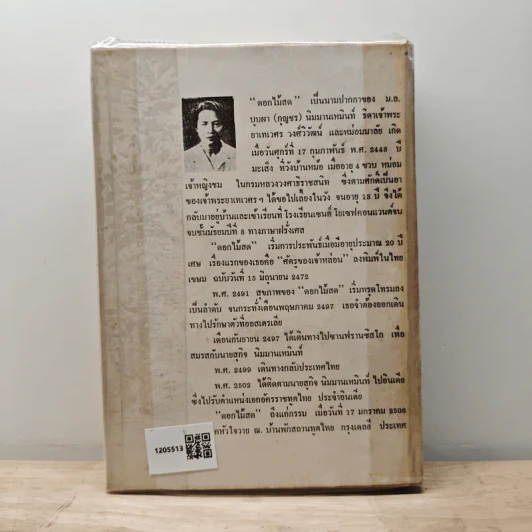 “ดอกไม้สด” เป็นนามปากกาของ ม.ล.
บุบผา (กุญชร) นิมมานเหมินท์ ธิดาเจ้าพระ
ยาเทเวศร วงศ์วิวัฒน์ และหม่อมมาลัย เกิด
เมื่อวันศุกร์ที่ 17 กุมภาพันธ์ พ.ศ. 2448 ปี
มะเส็ง ที่วังบ้านหม้อ เมื่ออายุ 4 ขวบ หม่อม
เจ้าหญิงชม ในกรมหลวงวงศาธิราชสนิท ซึ่งตามศักดิ์เป็นอา
ของเจ้าพระยาเทเวศรฯ ได้ขอไปเลี้ยงในวัง จนอายุ 13 ปี จึงได้
กลับมาอยู่บ้านและเข้าเรียนที่ โรงเรียนเซนต์ โยเซฟคอนแวนต์จน
จบชั้นมัธยมปีที่ 8 ทางภาษาฝรั่งเศส
“ดอกไม้สด” เริ่มการประพันธ์เมื่อมีอายุประมาณ 20 ปี
เศษ เรื่องแรกของเธอคือ “ศัตรูของเจ้าหล่อน” ลงพิมพ์ในไทย
เขษม ฉบับวันที่ 15 มิถุนายน 2472
พ.ศ. 2491 สุขภาพของ “ดอกไม้สด” เริ่มทรุดโทรมลง
เป็นลำดับ จนกระทั่งเดือนพฤษภาคม 2497 เธอจำต้องออกเดิน
ทางไปรักษาตัวที่ออสเตรเลีย
เดือนกันยายน 2497 ได้เดินทางไปซานฟรานซิสโก เพื่อ
สมรสกับนายสุกิจ นิมมานเหมินท์
พ.ศ. 2499 เดินทางกลับประเทศไทย
พ.ศ. 2502 ได้ติดตามนายสุกิจ นิมมานเหมินท์ ไปอินเดีย
ซึ่งไปรับตำแหน่งเอกอัครราชทูตไทย ประจำอินเดีย
“ดอกไม้สด” ถึงแก่กรรม เมื่อวันที่ 17 มกราคม 2506
หัวใจวาย ณ. บ้านพักสถานทูตไทย กรุงเดลฮี ประเทศ
1205513